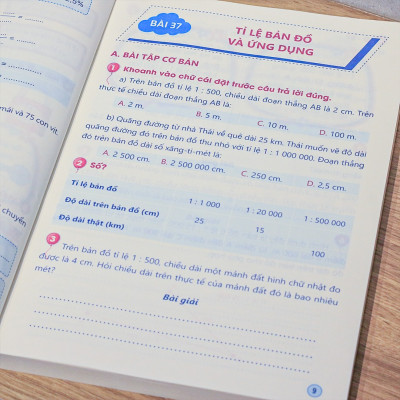 5%
nái và 75 con vịt.
chuyển
BÀI 37
TỈ LỆ BẢN ĐỒ
VÀ ỨNG DỤNG
A. BÀI TẬP CƠ BẢN
1 Khoanh vào chữ cái đặt trước câu trả lời đúng.
a) Trên bản đồ tỉ lệ 1 : 500, chiều dài đoạn thẳng AB là 2 cm. Trên
thực tế chiều dài đoạn thẳng AB là:
A. 2 m. B. 5 m. C. 10 m. D. 100 m.
b) Quãng đường từ nhà Thái về quê dài 25 km. Thái muốn vẽ độ dài
quãng đường đó trên bản đồ thu nhỏ với tỉ lệ 1 : 1 000 000. Đoạn thẳng
đó trên bản đồ dài số xăng-ti-mét là:
A. 2 500 cm. B. 2 500 000 cm. C. 250 cm. D. 2,5 cm.
2 Số?
Tỉ lệ bản đồ 1 : 1 000 1 : 20 000 1 : 500 000
Độ dài trên bản đồ (cm) 25 15
Độ dài thật (km) 100
3 Trên bản đồ tỉ lệ 1 : 500, chiều dài một mảnh đất hình chữ nhật đo
được là 4 cm. Hỏi chiều dài trên thực tế của mảnh đất đó là bao nhiêu
mét?
Bài giải
9